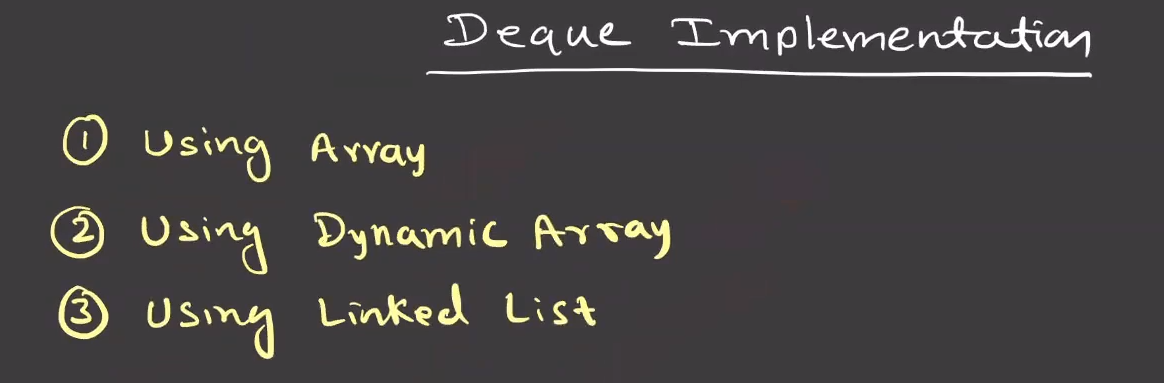 Deque Implementation
① Using Array
② Using Dynamic Array
③ Using Linked List